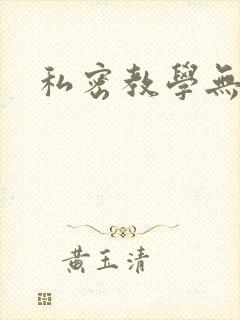 私密教學無
黃玉清